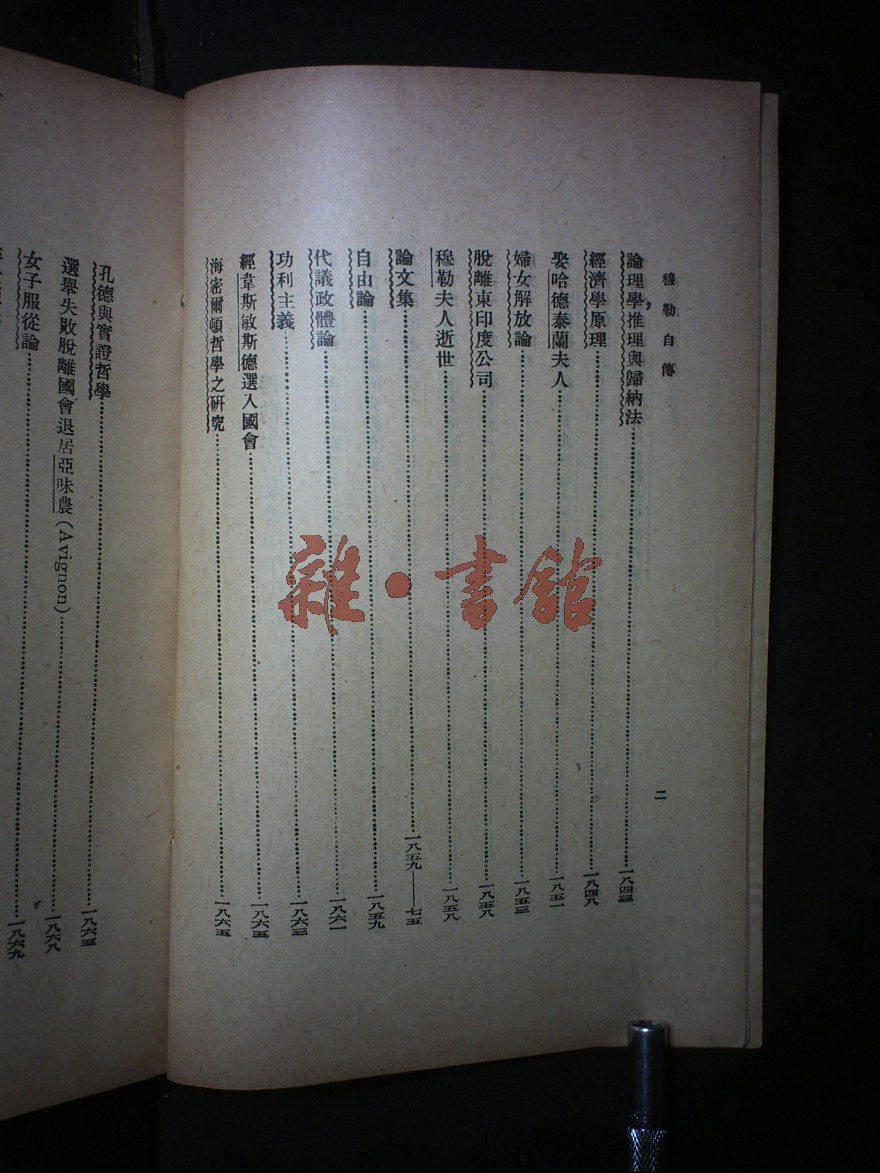 穆勒自傳
二
論理學,推理與歸納法……一八四三
經濟學原理……一八四八
娶哈德泰蘭夫人……一八五一
婦女解放論……一八五三
脫離東印度公司……一八五八
穆勒夫人逝世……一八五八
論文集……一八五九——七五
自由論……一八五九
代議政體論……一八六一
功利主義……一八六三
經韋斯敏斯德選入國會……一八六五
海密爾頓哲學之研究……一八六五
孔德與實證哲學……一八六五
選舉失敗脫離國會退居亞味農(Avignon)……一八六八
女子服從論……一八六九
雜·書館